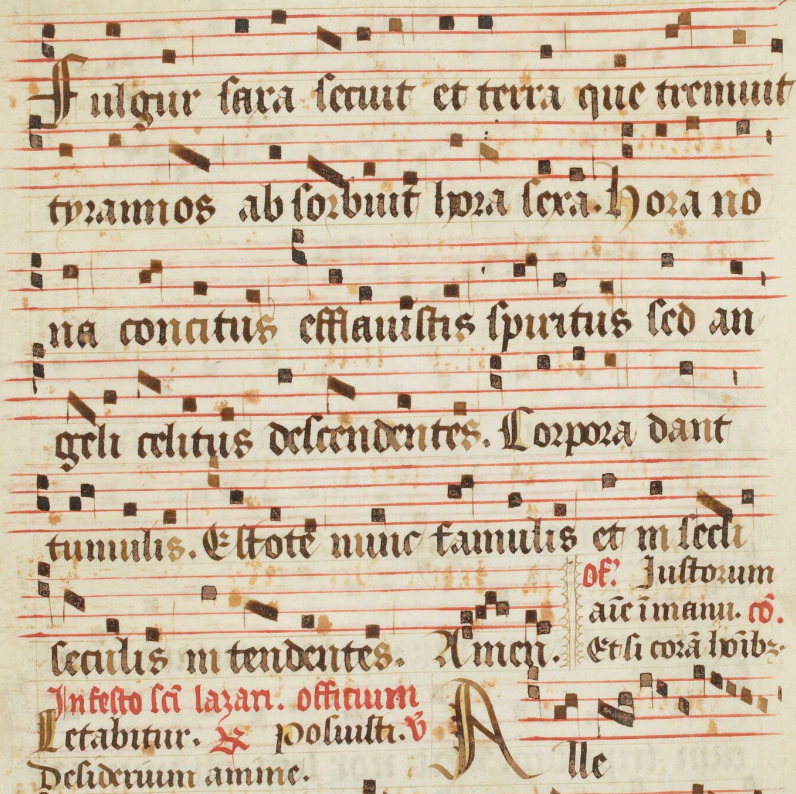 Fulgur saxa secuit et terra que tremuit
tyrannos absorbuit hora sexa. Hora no
na concitus efflauistis spiritus sed an
geli celitus descendentes. Corpora dant
tumulis. Estote nunc famulis et in secli
seculis intendentes. Amen.
of̄. Iustorum
aīe ī manu. cō.
Et si corā hoībz.
In festo sc̄i lazari. offitium
Letabitur. ℟ Posuisti. ℣
Desiderium anime.
Alle